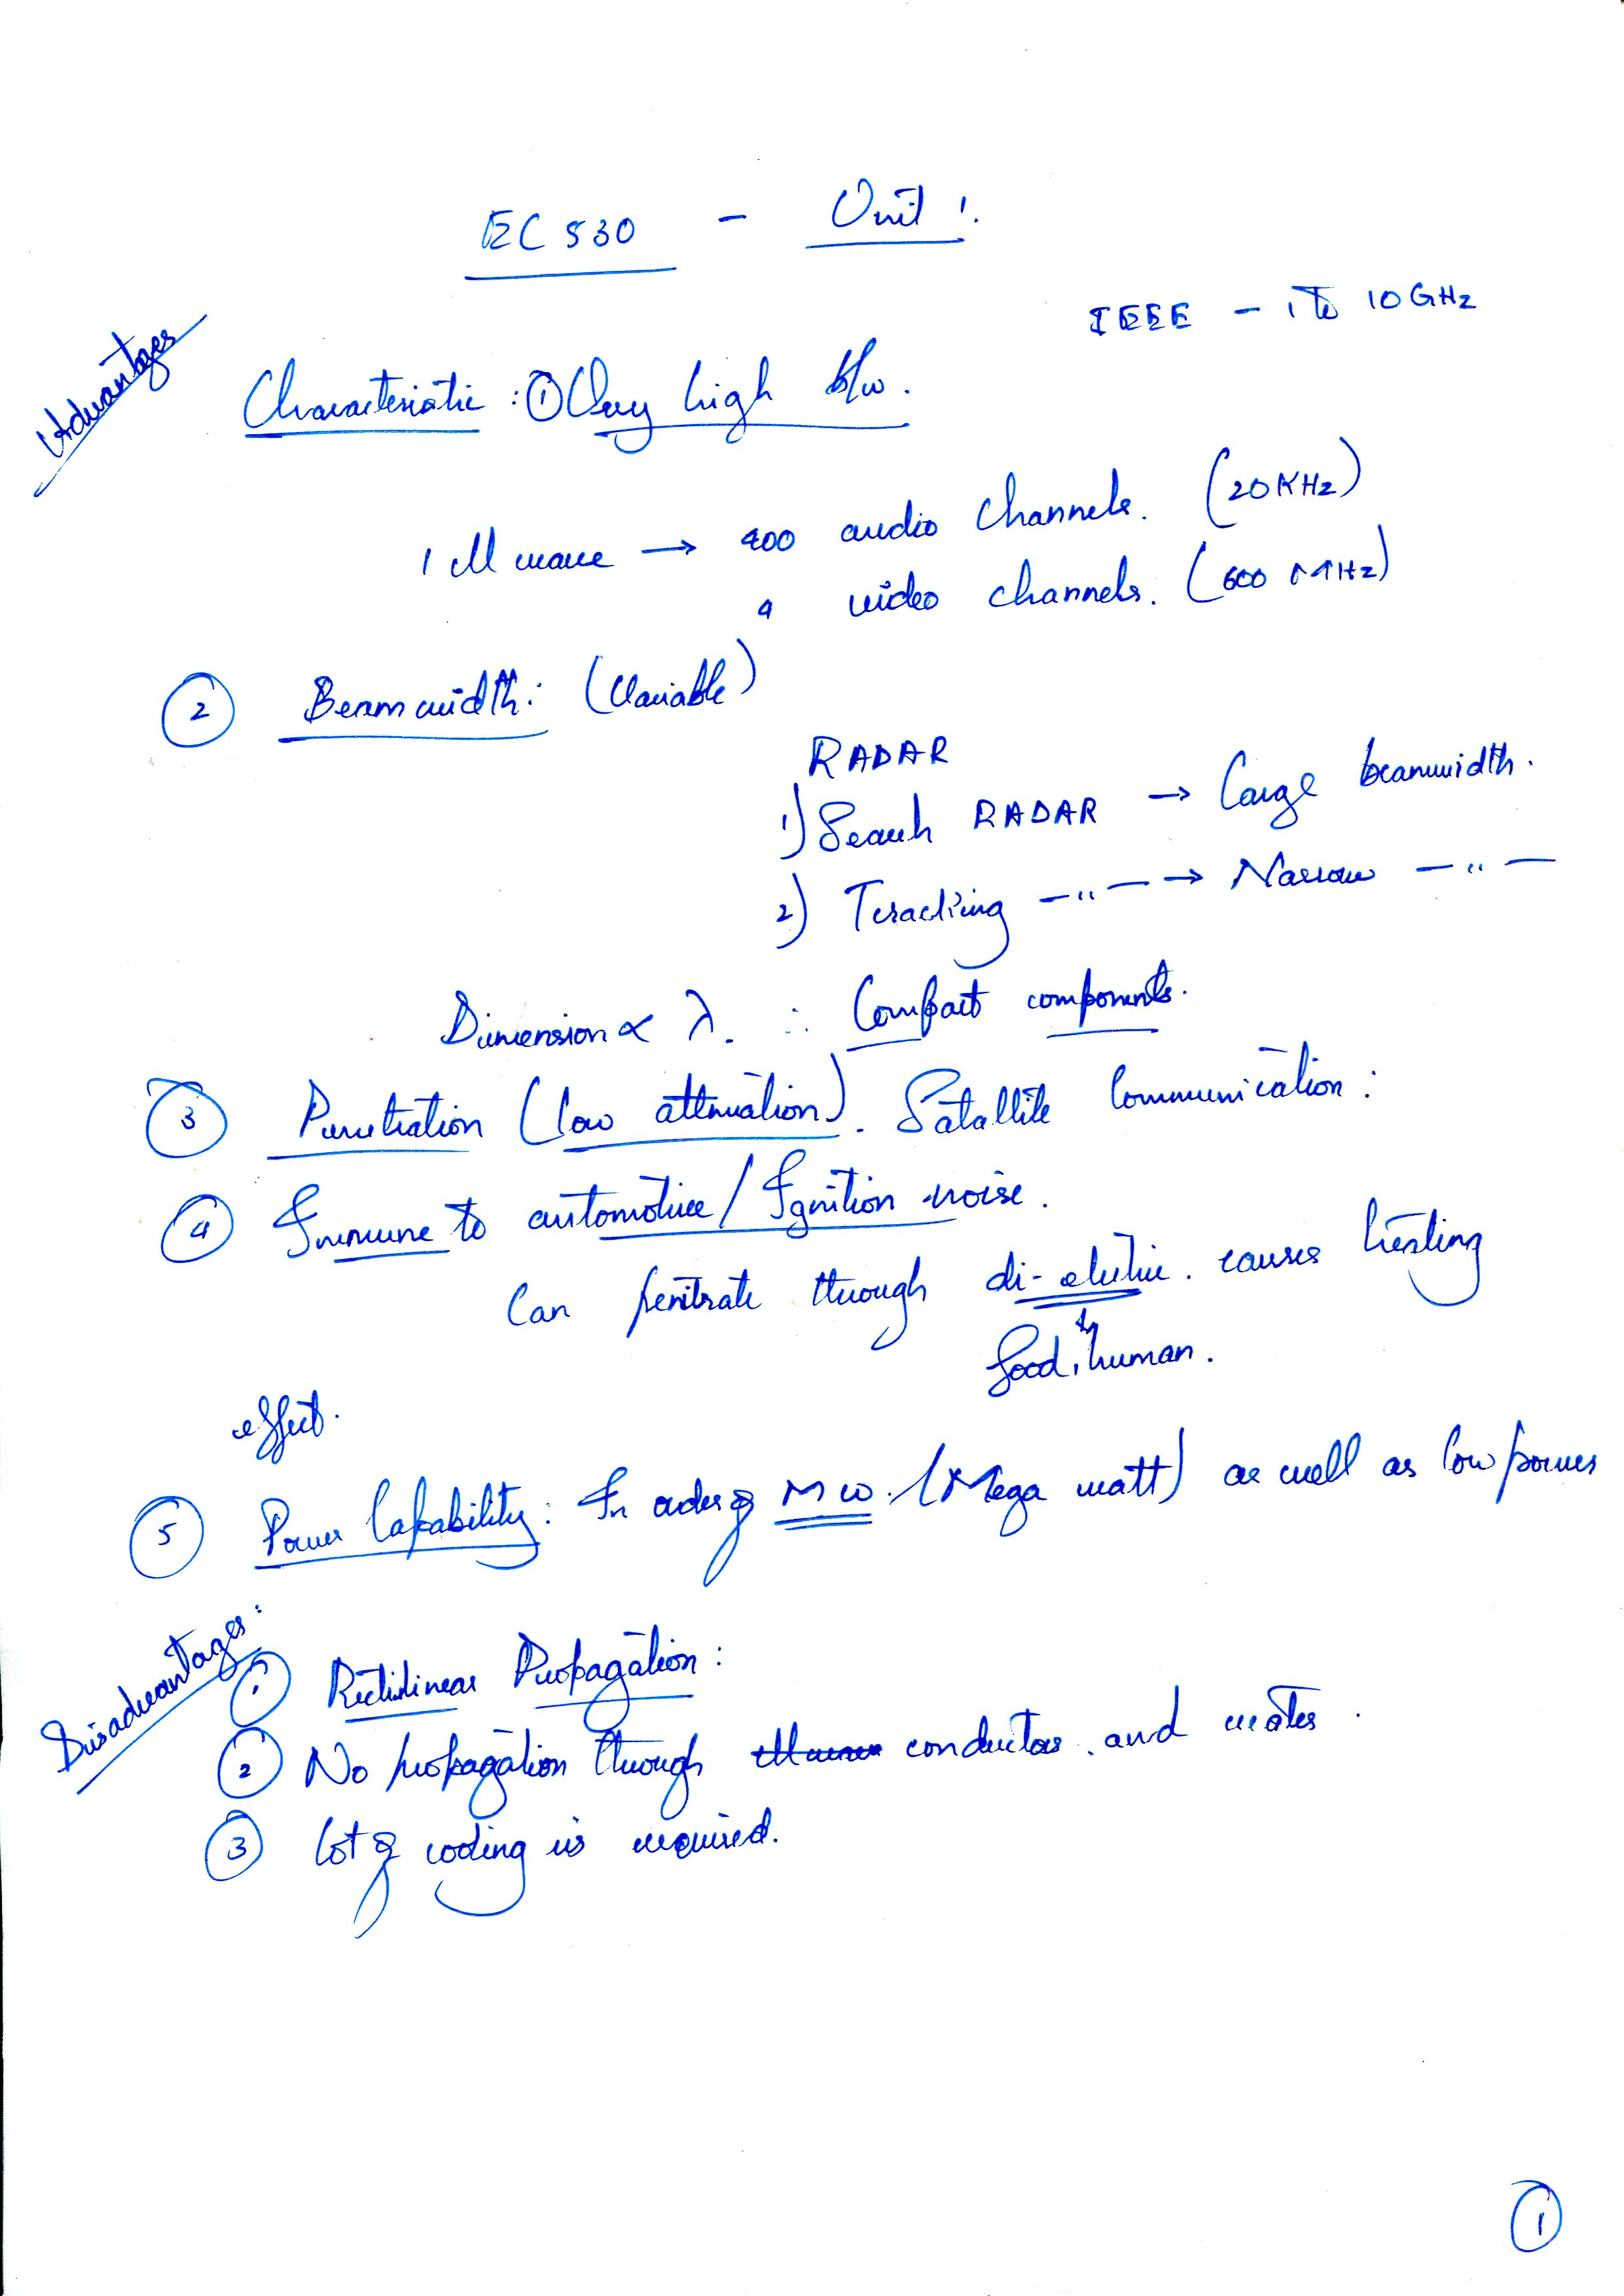 EC 530 - Unit 1.
IEEE - 1 to 10 GHz
Advantages
Characteristic : ① Very high b/w.
1 M wave → 400 audio channels. (20 KHz)
4 video channels. (600 MHz)
② Beamwidth : (Variable)
RADAR
1) Search RADAR → Large beamwidth.
2) Tracking —"— → Narrow —"—
Dimension ∝ λ. ∴ Compact components.
③ Penetration (low attenuation). Satallite Communication :
④ Immune to automotive / Ignition noise.
Can penitrate through di-electric. causes heating
food, human.
effect.
⑤ Power Capability : In order of MW. (Mega watt) as well as low power
Disadvantages :
① Rectilinear Propagation :
② No propagation through conductors. and water.
③ Lot of coding is required.
①